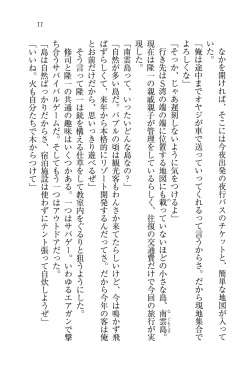 11
なかを開ければ、そこには今夜出発の夜行バスのチケットと、簡単な地図が入って
いた。
「俺は途中までオヤジが車で送ってくれるって言うからさ。だから現地集合で」
「そっか、じゃあ遅刻しないように気をつけるよ」
行き先はS湾の端の端に位置する地図にも載っていないほどの小さな島、南雲島。
現在は隆一の親戚親子が管理をしているらしく、往復の交通費だけで今回の旅行が実
現した。
「南雲島って、いったいどんな島なの?」
「自然が多い島だ。バブルの頃は観光客もわんさか来てたらしいけど、今は鳴かず飛
ばずらしくて、来年から本格的にリゾート開発するんだってさ。だから今年の客は俺
とお前だけだから、思いっきり遊べるぜ」
そう言って隆一は銃を構える仕草をして教室内をぐるりと狙うようにした。
修司と隆一の共通の趣味はいくつかある。一つはサバゲー。いわゆるエアガンで撃
ちあうサバイバルゲームだ。そしてもう一つはアウトドアだった。
「島は自然ばっかりだからさ、宿泊施設は使わずにテント張って自炊しようぜ」
「いいね。火も自分たちで木からつけて」